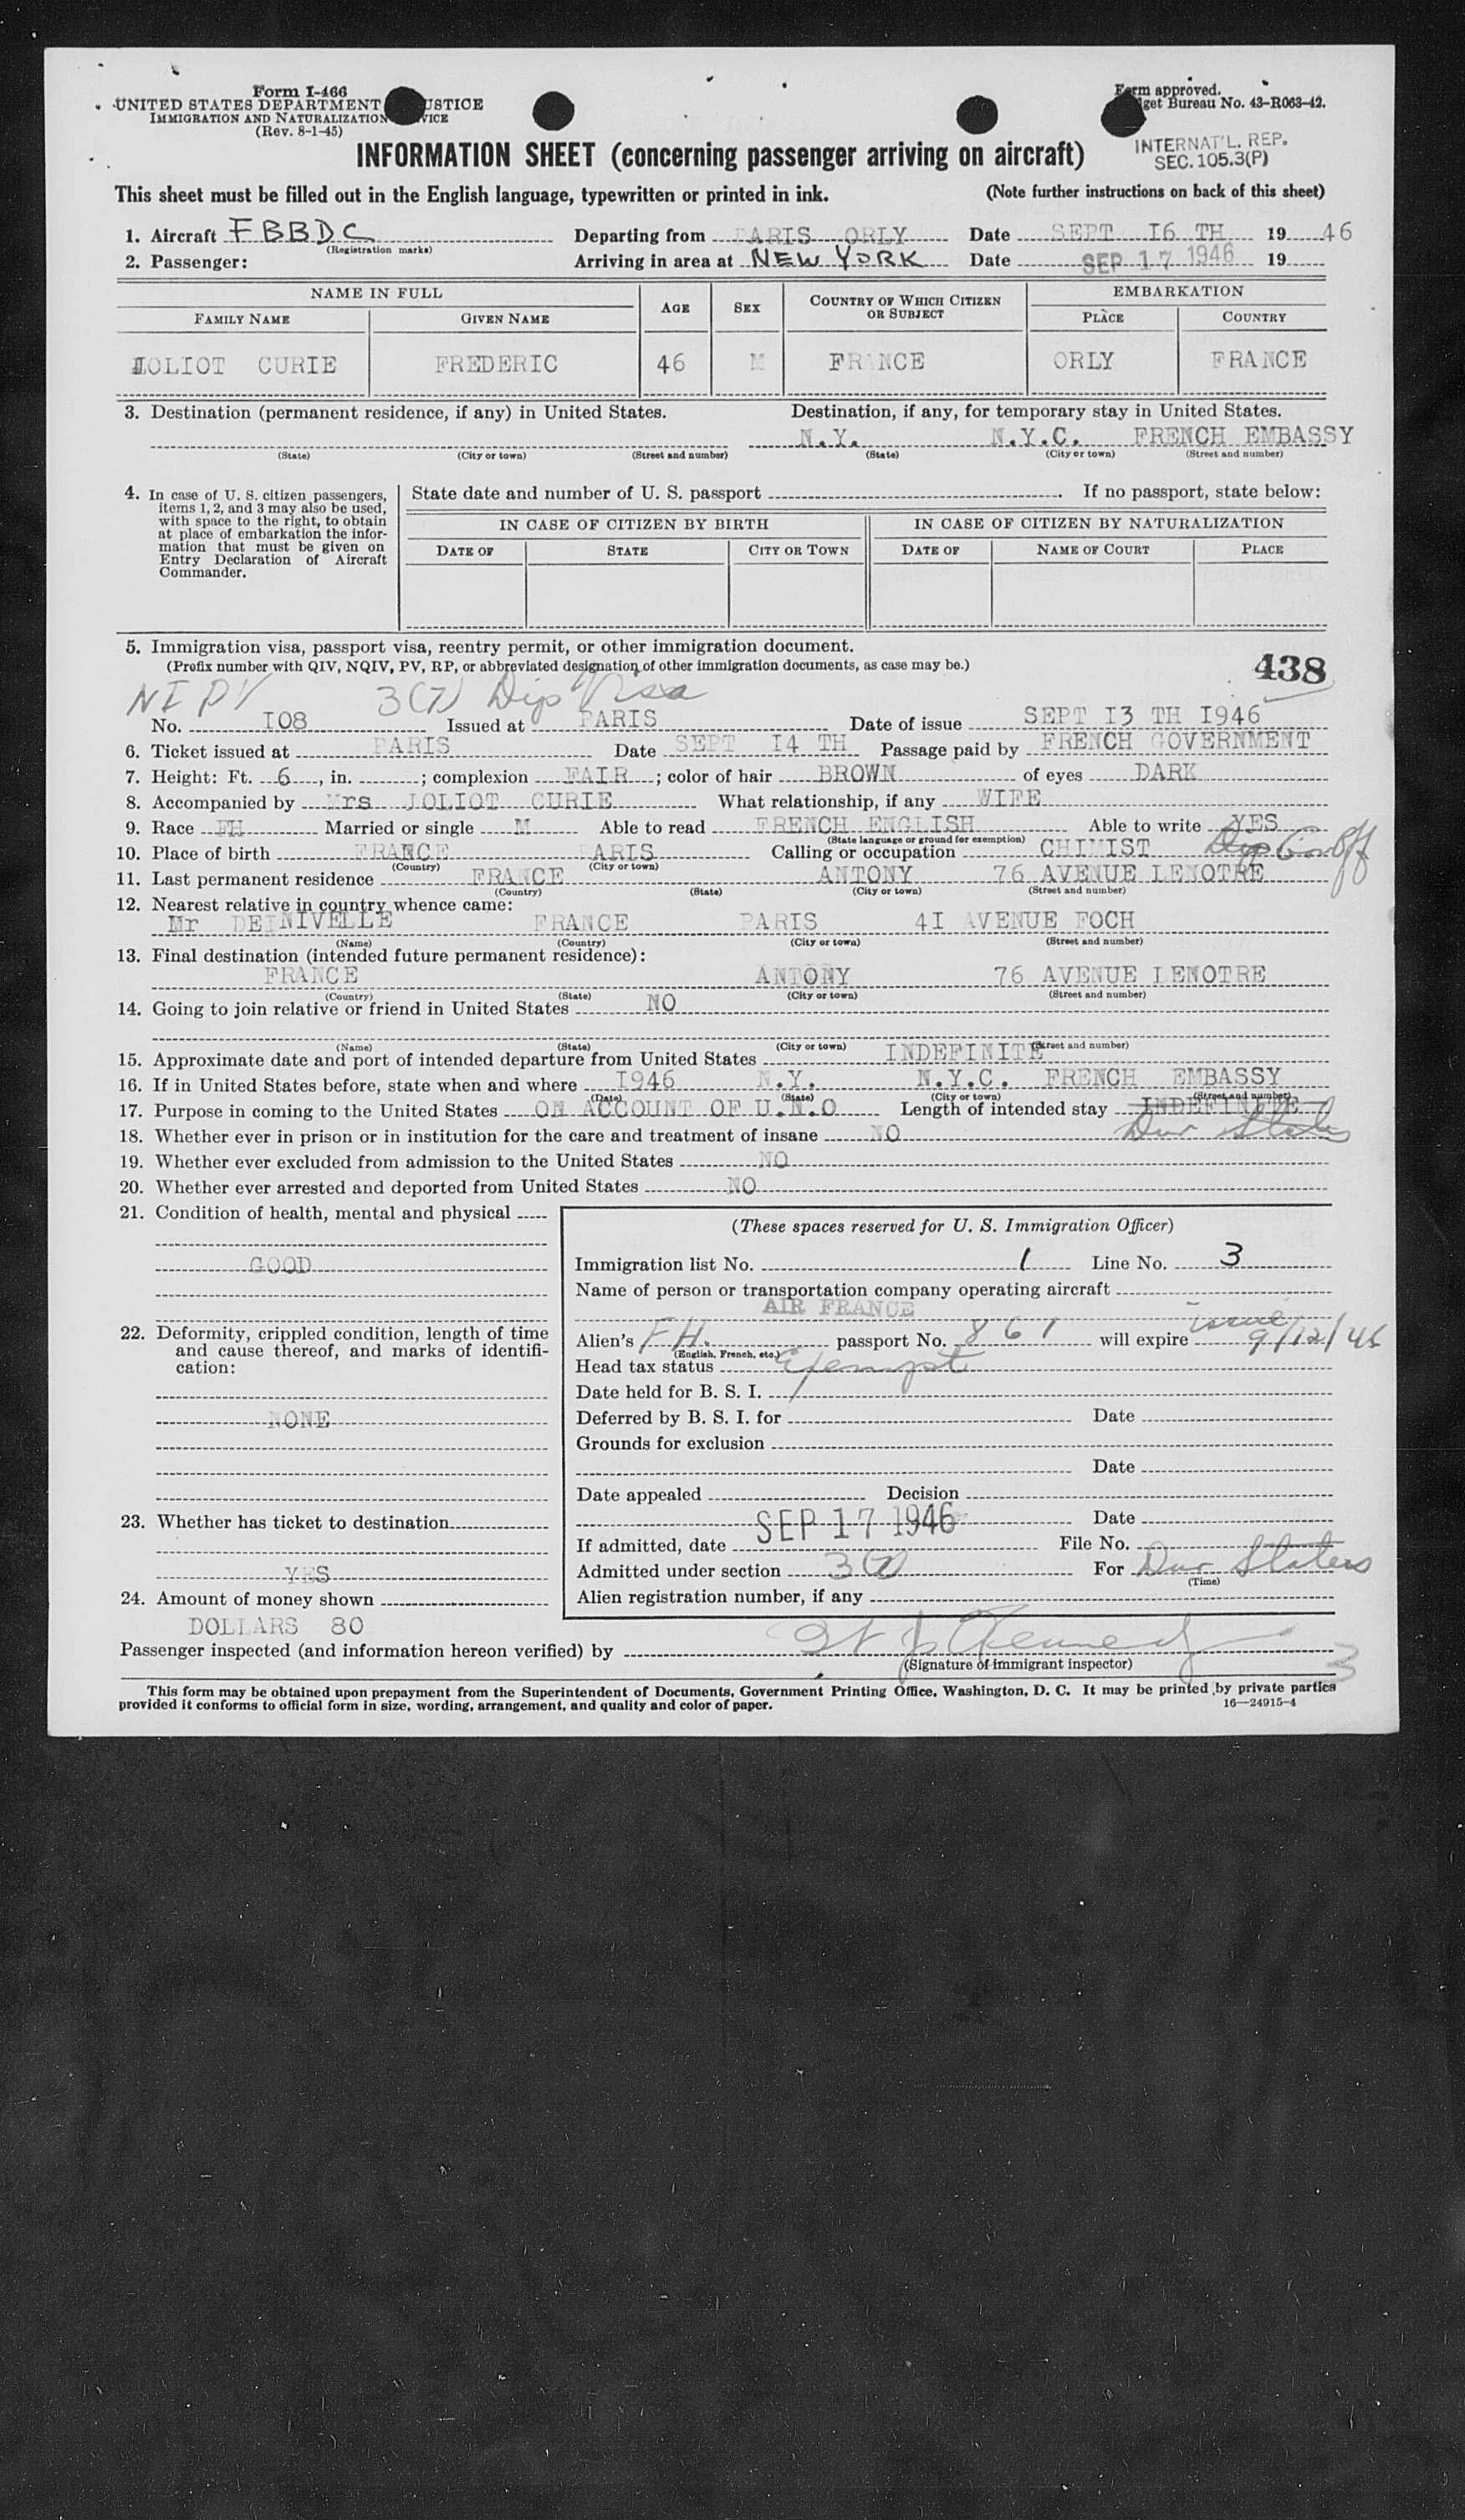 Form I-466
UNITED STATES DEPARTMENT USTICE
IMMIGRATION AND NATURALIZATION VICE
(Rev. 8-1-45)
Form approved.
get Bureau No. 43-R063-42.
INTERNAT'L. REP.
SEC. 105.3(P)
INFORMATION SHEET (concerning passenger arriving on aircraft)
This sheet must be filled out in the English language, typewritten or printed in ink. (Note further instructions on back of this sheet)
1. Aircraft FBBDC Departing from PARIS ORLY Date SEPT I6 TH 19 46
(Registration marks)
2. Passenger: Arriving in area at NEW YORK Date SEP 17 1946 19
NAME IN FULL AGE SEX COUNTRY OF WHICH CITIZEN OR SUBJECT EMBARKATION
FAMILY NAME GIVEN NAME PLACE COUNTRY
JOLIOT CURIE FREDERIC 46 M FRANCE ORLY FRANCE
3. Destination (permanent residence, if any) in United States. Destination, if any, for temporary stay in United States.
N.Y. N.Y.C. FRENCH EMBASSY
(State) (City or town) (Street and number) (State) (City or town) (Street and number)
4. In case of U. S. citizen passengers, items 1, 2, and 3 may also be used, with space to the right, to obtain at place of embarkation the information that must be given on Entry Declaration of Aircraft Commander.
State date and number of U. S. passport . If no passport, state below:
IN CASE OF CITIZEN BY BIRTH IN CASE OF CITIZEN BY NATURALIZATION
DATE OF STATE CITY OR TOWN DATE OF NAME OF COURT PLACE
5. Immigration visa, passport visa, reentry permit, or other immigration document.
(Prefix number with QIV, NQIV, PV, RP, or abbreviated designation of other immigration documents, as case may be.)
438
NI PV 3(7) Dip Visa
No. I08 Issued at PARIS Date of issue SEPT I3 TH I946
6. Ticket issued at PARIS Date SEPT I4 TH Passage paid by FRENCH GOVERNMENT
7. Height: Ft. 6, in. ; complexion FAIR; color of hair BROWN of eyes DARK
8. Accompanied by Mrs JOLIOT CURIE What relationship, if any WIFE
9. Race FH Married or single M Able to read FRENCH ENGLISH Able to write YES
(State language or ground for exemption)
10. Place of birth FRANCE PARIS Calling or occupation CHIMIST
(Country) (City or town)
11. Last permanent residence FRANCE ANTONY 76 AVENUE LENOTRE
(Country) (State) (City or town) (Street and number)
12. Nearest relative in country whence came:
Mr DENIVELLE FRANCE PARIS 4I AVENUE FOCH
(Name) (Country) (City or town) (Street and number)
13. Final destination (intended future permanent residence):
FRANCE ANTONY 76 AVENUE LENOTRE
(Country) (State) (City or town) (Street and number)
14. Going to join relative or friend in United States NO
(Name) (State) (City or town) (Street and number)
15. Approximate date and port of intended departure from United States INDEFINITE
16. If in United States before, state when and where I946 N.Y. N.Y.C. FRENCH EMBASSY
(Date) (State) (City or town) (Street and number)
17. Purpose in coming to the United States ON ACCOUNT OF U.N.O Length of intended stay INDEFINITE
Dur Status
18. Whether ever in prison or in institution for the care and treatment of insane NO
19. Whether ever excluded from admission to the United States NO
20. Whether ever arrested and deported from United States NO
21. Condition of health, mental and physical
GOOD
22. Deformity, crippled condition, length of time and cause thereof, and marks of identification:
NONE
23. Whether has ticket to destination
YES
24. Amount of money shown
DOLLARS 80
(These spaces reserved for U. S. Immigration Officer)
Immigration list No. 1 Line No. 3
Name of person or transportation company operating aircraft
AIR FRANCE
issue
Alien's FH. passport No. 861 will expire 9/12/46
(English, French, etc.)
Head tax status Exempt
Date held for B. S. I.
Deferred by B. S. I. for Date
Grounds for exclusion
Date
Date appealed Decision
Date
If admitted, date SEP 17 1946 File No.
Admitted under section 3(7) For Dur Status
(Time)
Alien registration number, if any
Passenger inspected (and information hereon verified) by Kennedy
(Signature of immigrant inspector)
3
This form may be obtained upon prepayment from the Superintendent of Documents, Government Printing Office, Washington, D. C. It may be printed by private parties
provided it conforms to official form in size, wording, arrangement, and quality and color of paper. 16—24915-4